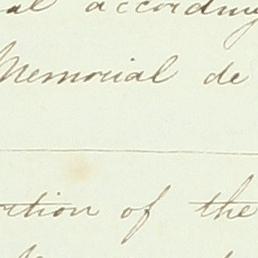 al according
Memorial de
rtion of the